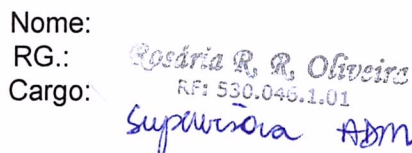 Nome:
RG.: Rosária R. R. Oliveira
RF: 530.046.1.01
Cargo:
Supervisora ADM